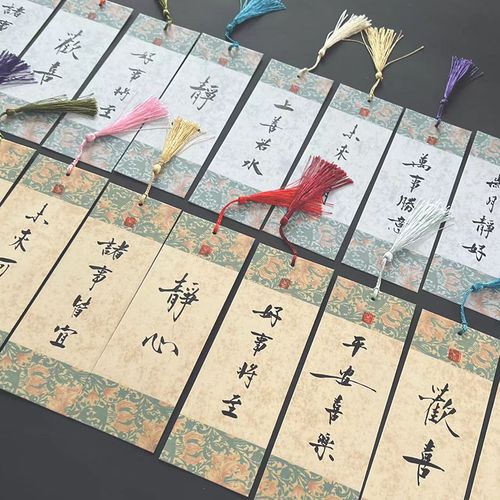 諸事
歡喜
好事將至
靜
上善若水
未來
萬事勝意
歲月靜好
未來可
諸事皆宜
靜心
好事將至
平安喜樂
歡喜